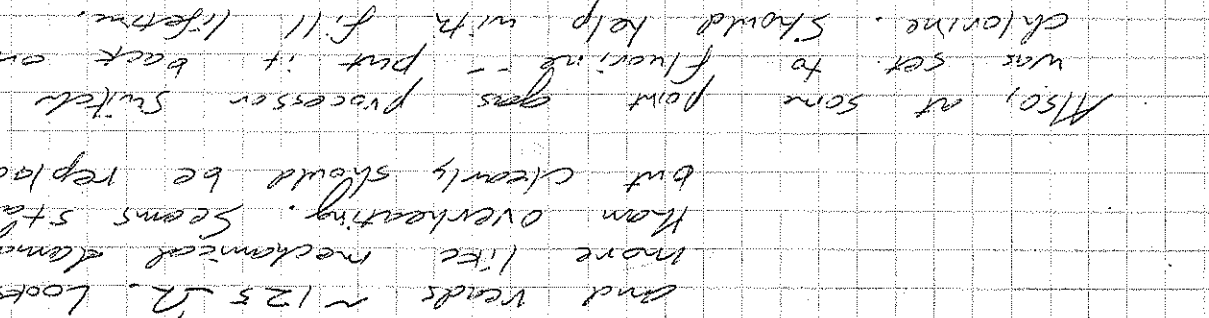 and reads ~125 Ω. Looks
more like mechanical dama
than overheating. Seems sta
but clearly should be replac
Also, at some point gas processor switch
was set to fluorine -- put it back on
chlorine. Should help with fill lifetime.